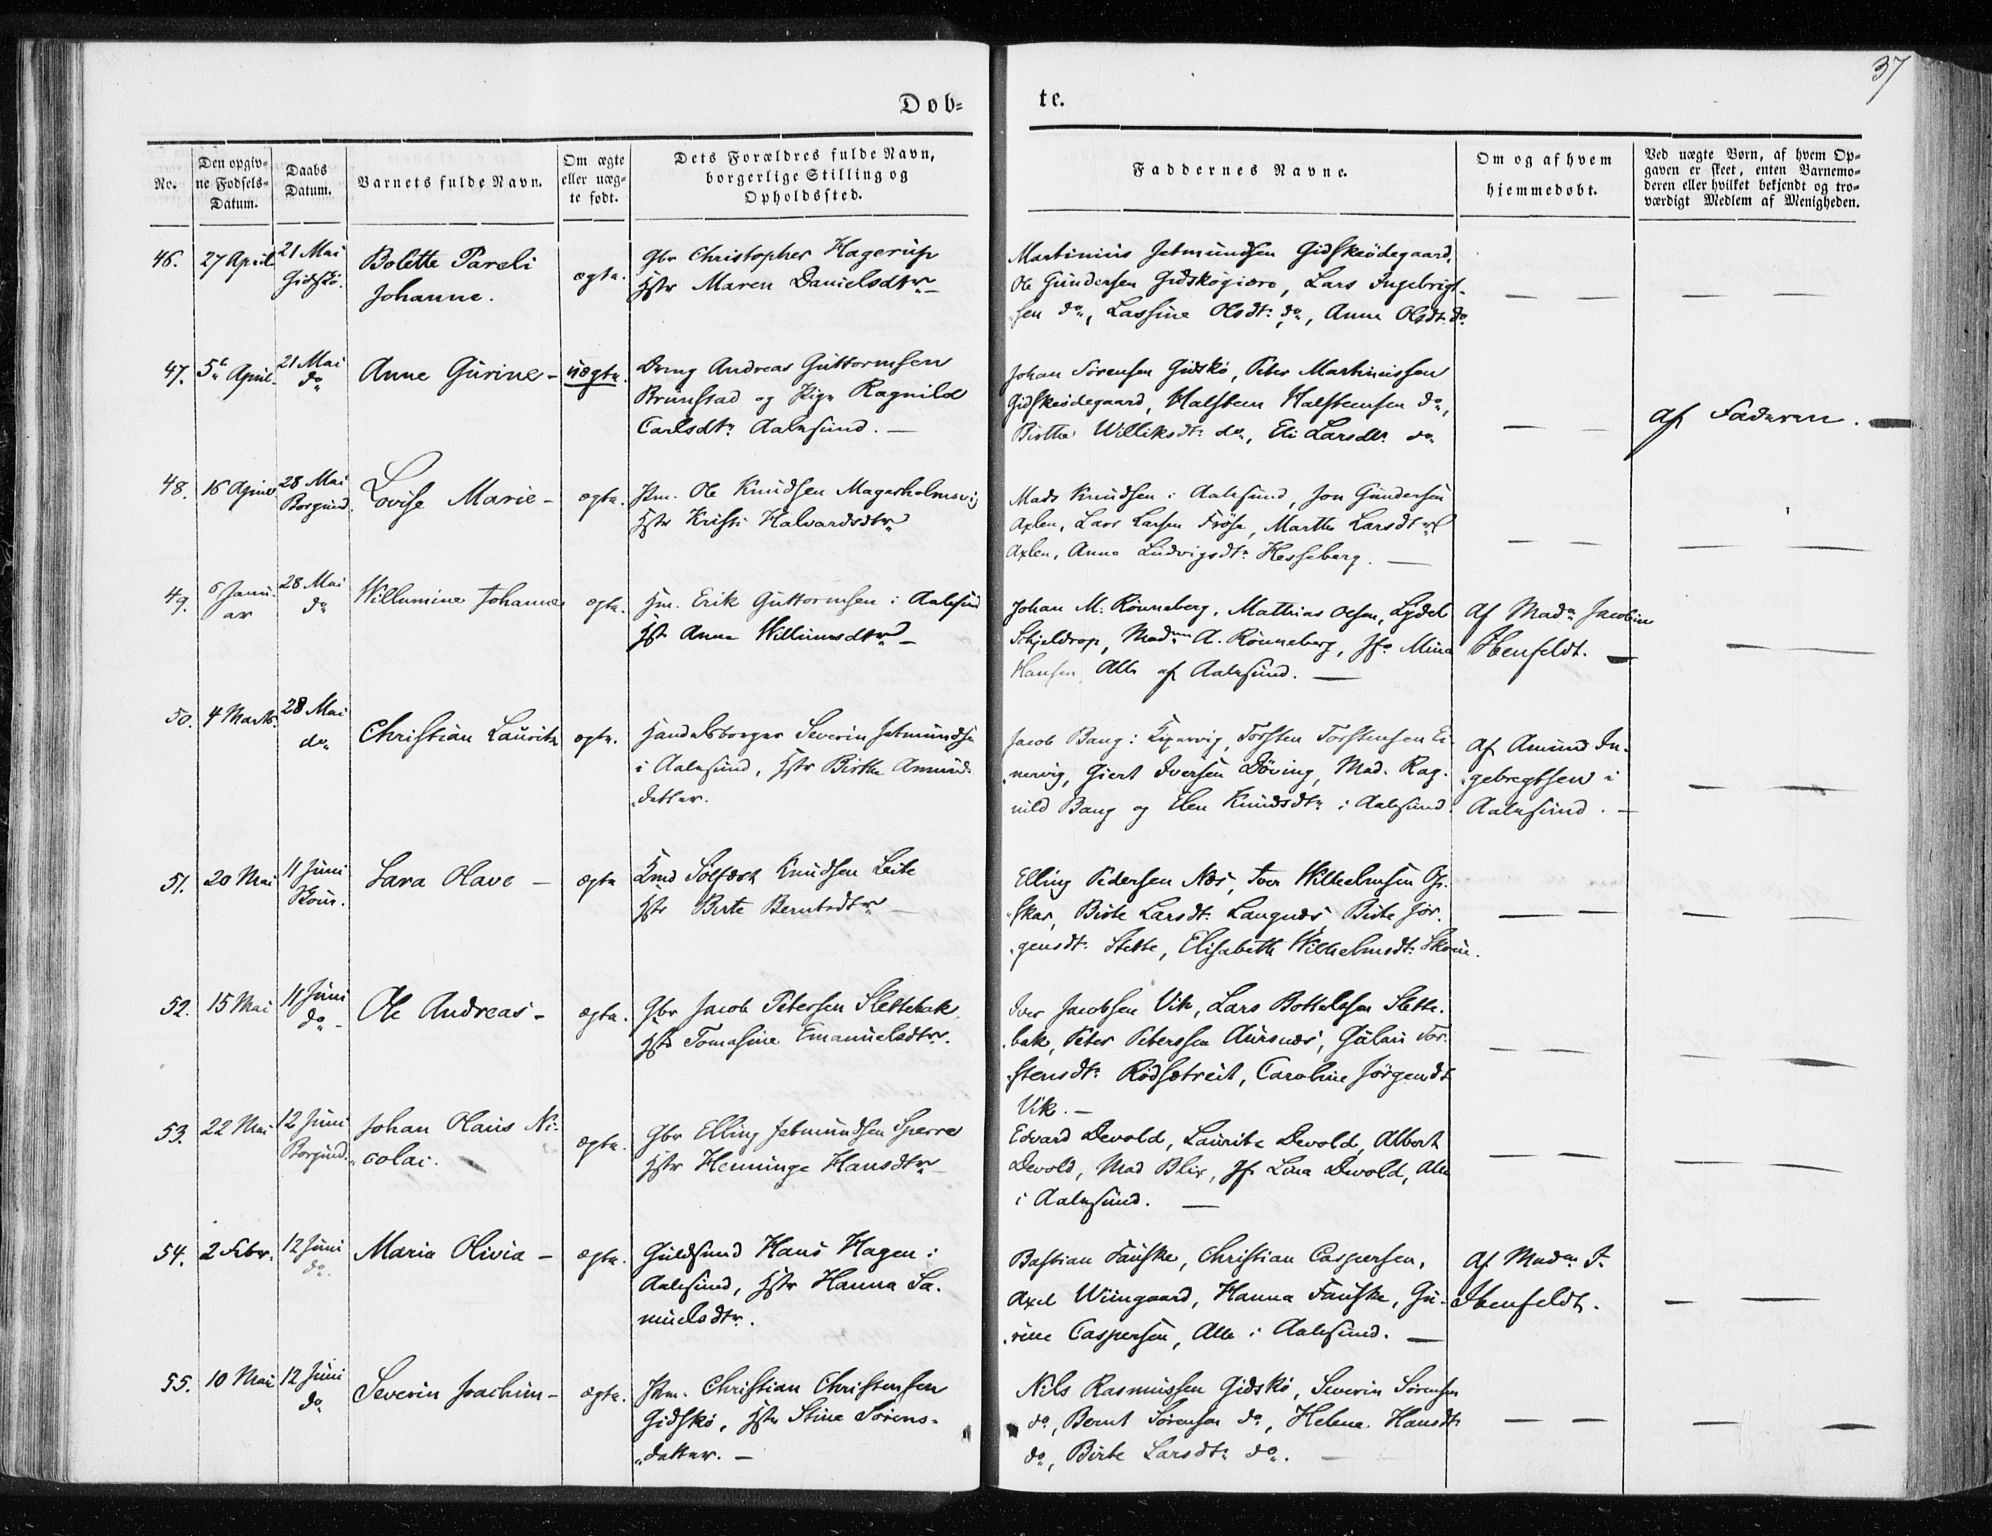 37
Døb-
te.
No.
Den opgiv-
ne Fødsels-
Datum.
Daabs
Datum.
Barnets fulde Navn.
Om ægte
eller uæg-
te født.
Dets Forældres fulde Navn,
borgerlige Stilling og
Opholdssted.
Faddernes Navne.
Om og af hvem
hjemmedøbt.
Ved uægte Børn, af hvem Op-
gaven er skeet, enten Barnemo-
deren eller hvilket bekjendt og tro-
værdigt Medlem af Menigheden.
46.
27 April
21 Mai
Gidskø.
Bolette Pareli
Johanne.
ægte.
Gbr Christopher Hagerup
Hstr Maren Danielsdtr
Martinius Jetmundsen Gidskeødegaard,
Ole Gundersen Gidskøgiære, Lars Ingebrigt-
sen do, Lassine Olsdtr do, Anne Olsdtr do
47.
5 April
21 Mai
do
Anne Gurine -
uægte.
Dreng Andreas Guttormsen
Brunstad og Pige Ragnild
Carlsdtr Aalesund. -
Johan Sørensen Gidskø, Peter Martinussen
Gidskeødegaard, Halsteen Halsteensen do,
Birthe Williksdtr do, Eli Larsdtr do
af Faderen. -
48.
16 April
28 Mai
Borgund.
Lovise Marie -
ægte.
Hm. Ole Knudsen Magerholmsvig
Hstr Kristi Halvardsdtr
Mads Knudsen i Aalesund, Jon Gundersen
Axlen, Lars Larsen Frøse, Marthe Larsdtr
Axlen, Anne Ludvigsdtr Hesseberg. -
49.
6 Janu-
ar
28 Mai
do
Willumine Johanne
ægte.
Hm. Erik Guttormsen i Aalesund
Hstr Anne Willumsdtr -
Johan M. Rønneberg, Mathias Olsen, Lydel
Schjeldrop, Madm A. Rønneberg, Jfr Mina
Hansen, Alle af Aalesund. -
Af Madm Jacobine
Ibenfeldt. -
50.
4 Marts
28 Mai
do
Christian Lauritz
ægte.
Handelsborger Severin Jetmundsen
i Aalesund, Hstr Birthe Amund-
datter.
Jacob Bang i Kipervig, Torsten Torstensen Ei-
nervig, Giert Iversen Døving, Mad. Rag-
nild Bang og Elen Knudsdtr i Aalesund.
af Amund In-
gebregtsen i
Aalesund. -
51.
20 Mai
11 Juni
Skoue.
Sara Olave -
ægte
Knud Knudsen Leite
Hstr Berte Berntsdtr -
Elling Pedersen Næs, Iver Wilhelmsen
Birte Larsdtr Langnæs Birte Jør-
gensdtr Slette, Elisabeth Wilhelmsdtr Skoue.
52.
15 Mai
11 Juni
do -
Ole Andreas -
ægte.
Gbr Jacob Petersen Slettebak
Hstr Tomasine Emanuelsdtr.
Iver Jacobsen Vik, Lars Bottelssen Slette-
bak, Peter Peterssen Aursnæs, Gulau Tor-
stensdtr Rødsætreit, Caroline Jørgensdtr
Vik. -
53.
22 Mai
12 Juni
Borgund.
Johan Olaus Ni-
colai.
ægte.
Gbr Elling Jetmundsen Sperre
Hstr Henninge Hansdtr
Edvard Devold, Lauritz Devold, Albert
Devold, Mad Blix, Jfr Lina Devold, Alle
i Aalesund. -
54.
2 Febr.
12 Juni
do.
Maria Olivia -
ægte.
Guldsmed Hans Hagen i
Aalesund, Hstr Hanna Sa-
muelsdtr.
Bastian Fauske, Christian Caspersen,
Axel Wiingaard, Hanna Fauske, Gu-
rine Caspersen, Alle i Aalesund. -
Af Madm J.
Ibenfeldt.
55.
10 Mai
12 Juni
do
Severin Joachim -
ægte.
Hm. Christian Christensen
Gidskø, Hstr Stine Sørens-
datter. -
Nils Rasmussen Gidskø, Severin Sørensen
do, Bernt Sørensen do, Helene Hansdtr
do, Birte Larsdtr do.